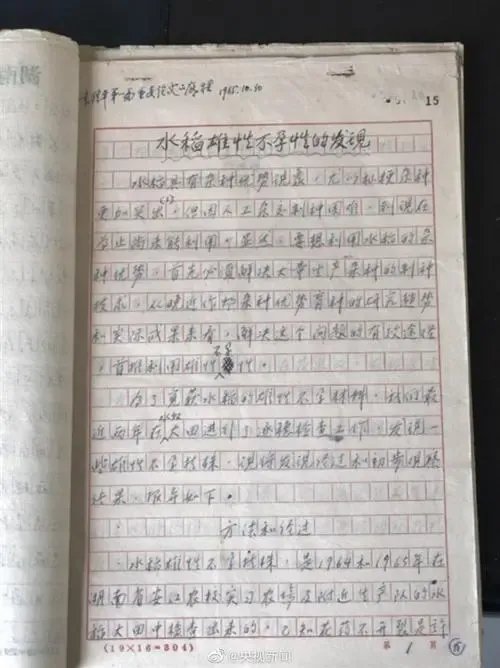 湖南
袁隆平第一篇重要论文的底稿 1965.10.30
15
水稻雄性不孕性的发现
水稻具有杂种优势现象，尤以籼粳杂种
更加突出，但因人工杂交制种困难，到现在
为止尚未能利用。显然，要想利用水稻的杂
种优势，首先必须解决大量生产杂种的制种
技术，从晚近作物杂种优势育种的研究趋势
和实际成果来看，解决这个问题的有效途径
，首推利用雄性不孕性。
为了获得水稻的雄性不孕材料，我们最
近两年在水稻大田进行了逐穗检查工作，发现一
些雄性不孕植株，现将发现经过和初步观察
结果，报导如下。
方法和经过
水稻雄性不孕植株，是1964和1965年在
湖南省安江农校实习农场及附近生产队的水
稻大田中检查出来的。已知花药不开裂是
(19×16=304)
第 1 页
@央视新闻